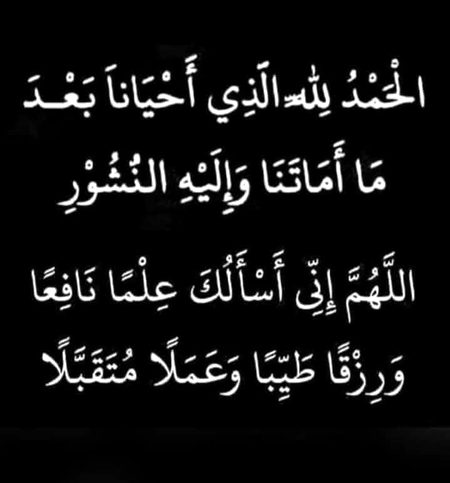 الْحَمْدُ لِلّٰهِ الَّذِي أَحْيَاناَ بَعْـدَ
مَا أَمَاتَنَا وَإِلَيْهِ النُّشُوْرِ
اللَّهُمَّ إِنِّى أَسْأَلُكَ عِلْمًا نَافِعًا
وَرِزْقًا طَيِّبًا وَعَمَلًا مُتَقَبَّلًا